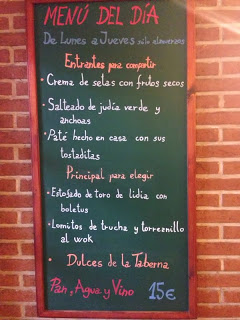 MENÚ DEL DÍA
De Lunes a Jueves sólo almuerzos
Entrantes para compartir
• Crema de setas con frutos secos
• Salteado de judía verde y
anchoas
• Paté hecho en casa con sus
tostaditas
Principal para elegir
• Estofado de toro de lidia con
boletus
• Lomitos de trucha y torreznillo
al wok
• Dulces de la Taberna
Pan, Agua y Vino 15€